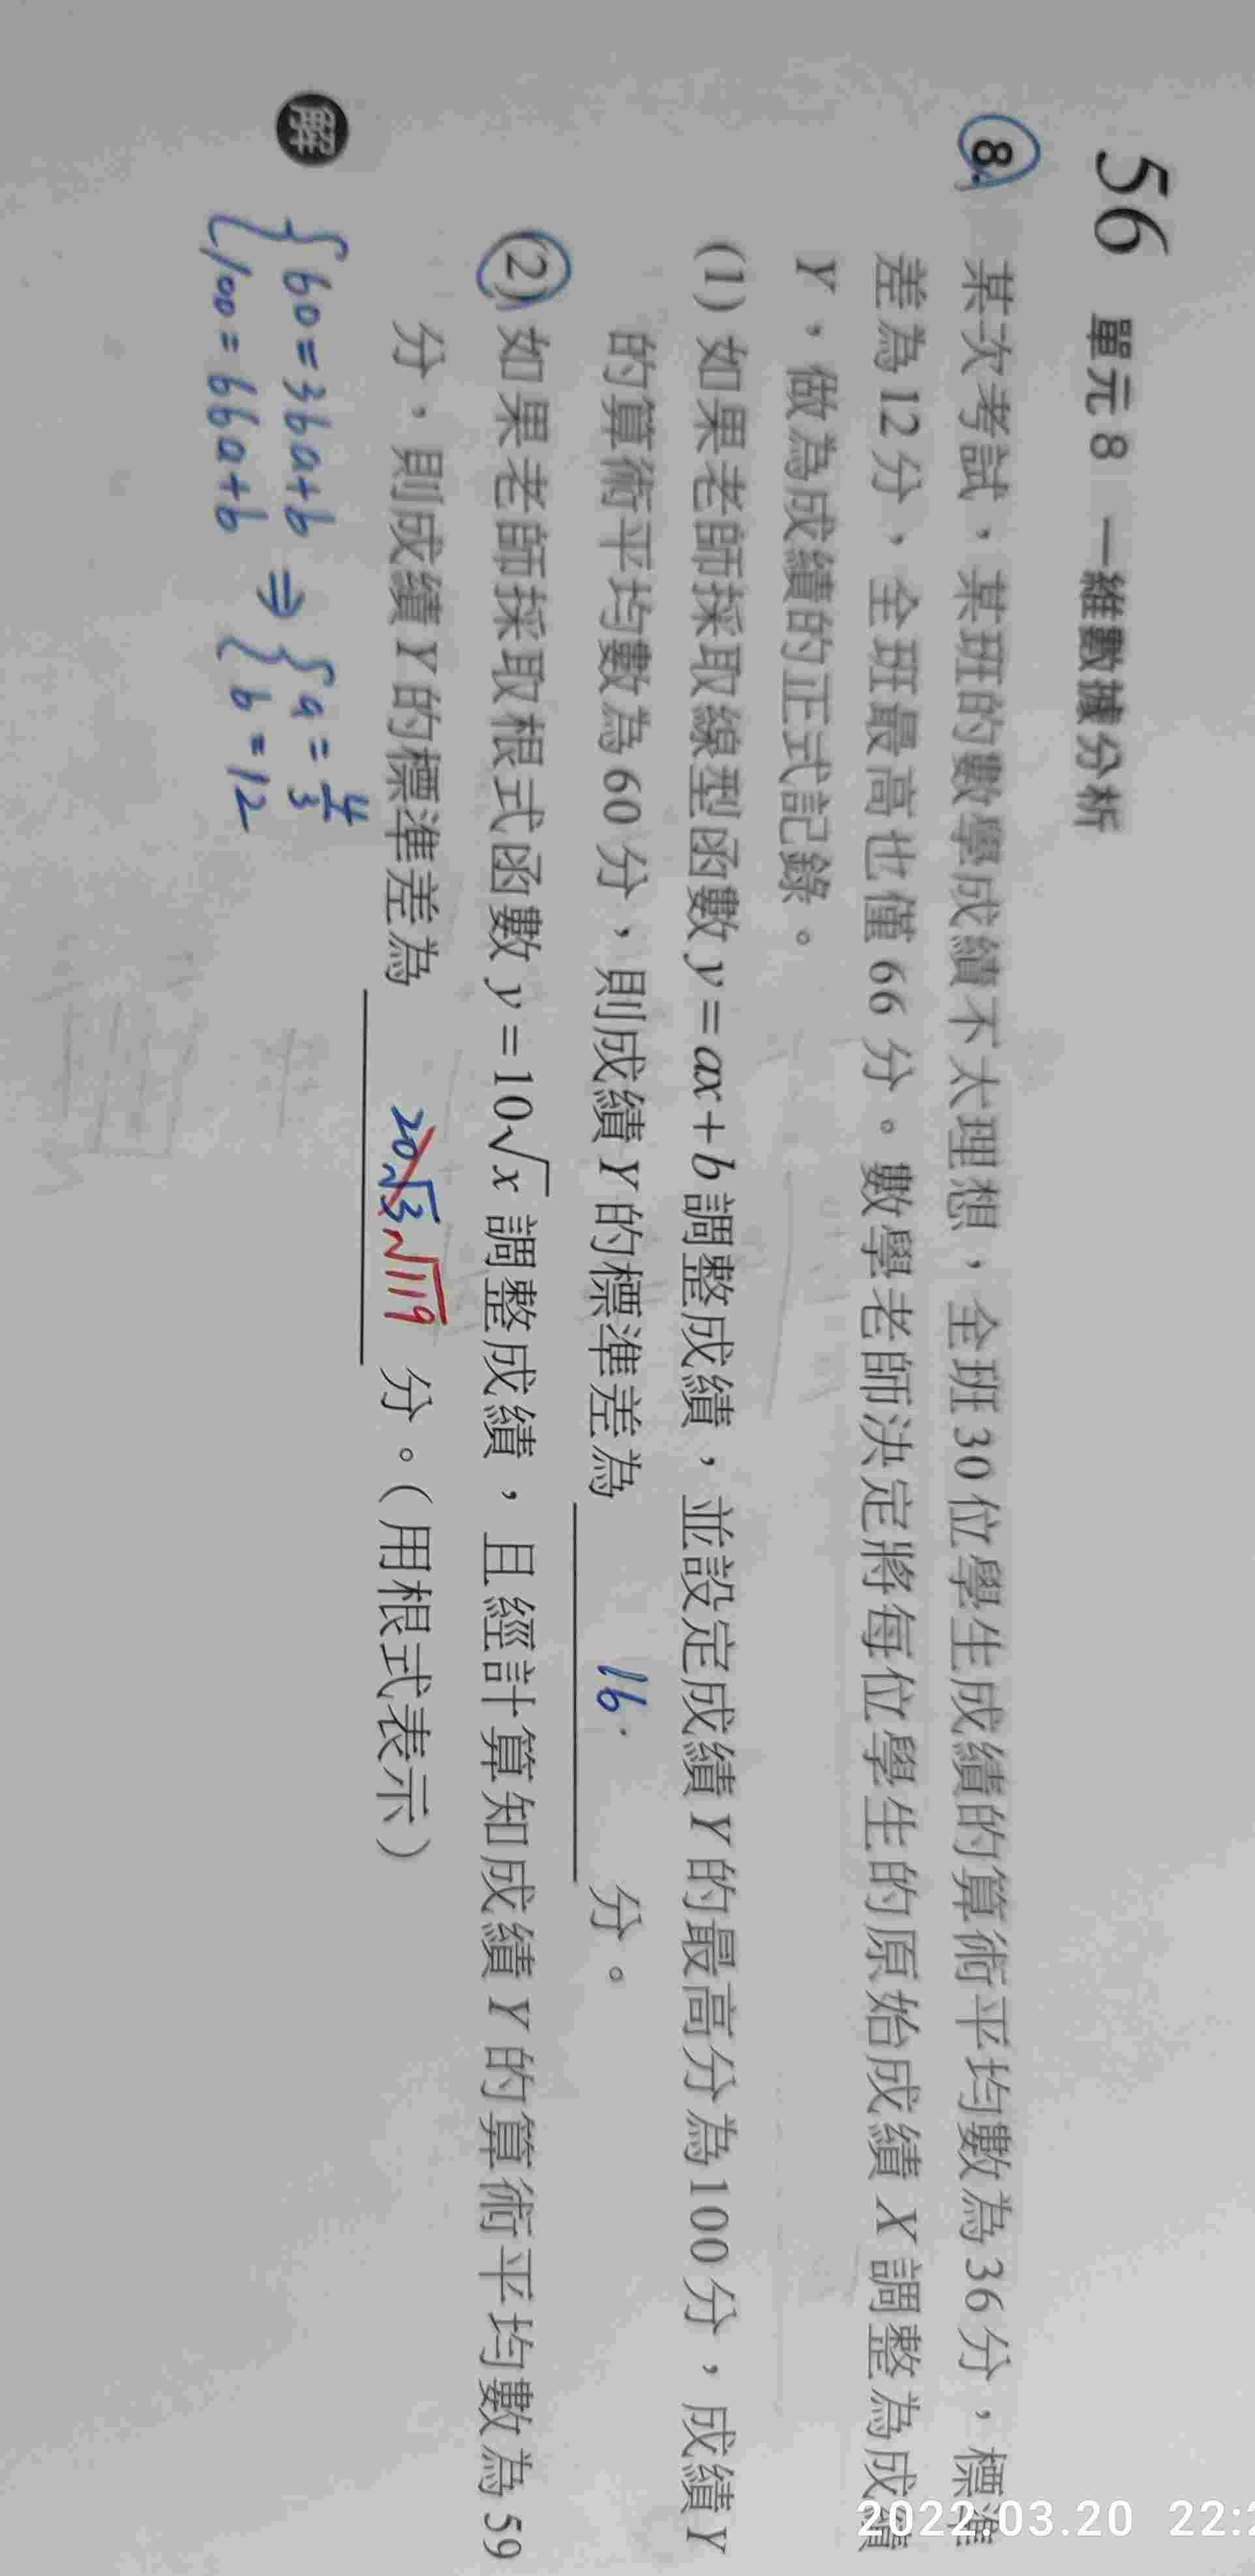 56 單元8 一維數據分析
8. 某次考試,某班的數學成績不太理想,全班30位學生成績的算術平均數為36分,標準
差為12分,全班最高也僅66分。數學老師決定將每位學生的原始成績X調整為成績
Y,做為成績的正式記錄。
(1) 如果老師採取線型函數y=ax+b調整成績,並設定成績Y的最高分為100分,成績Y
的算術平均數為60分,則成績Y的標準差為 16. 分。
(2) 如果老師採取根式函數y=10√x 調整成績,且經計算知成績Y的算術平均數為59
分,則成績Y的標準差為 20√3 √119 分。(用根式表示)
解 { 60=36a+b ⇒ { a=4/3
100=66a+b b=12
2022.03.20 22:2